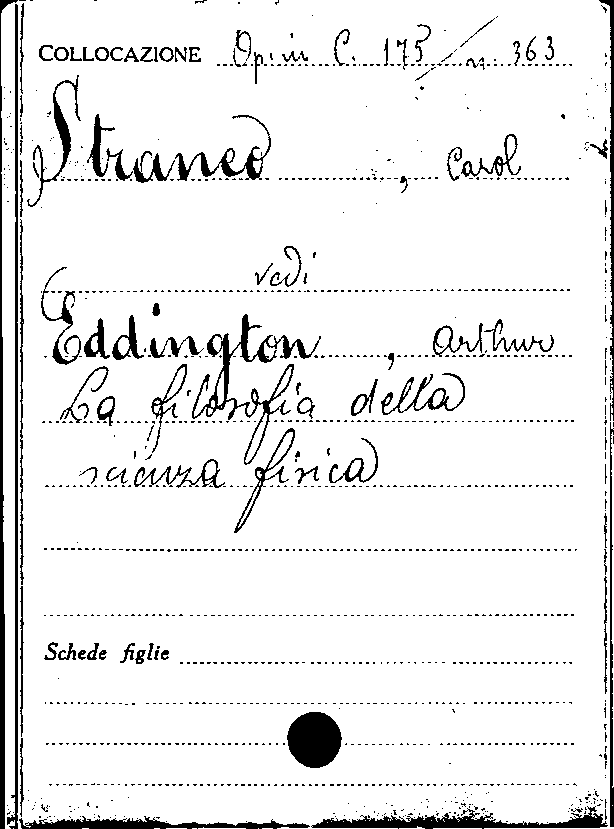 COLLOCAZIONE Opin C. 175/n. 363
Straneo, Carol
vedi
Eddington, Arthur
La filosofia della
scienza fisica
Schede figlie